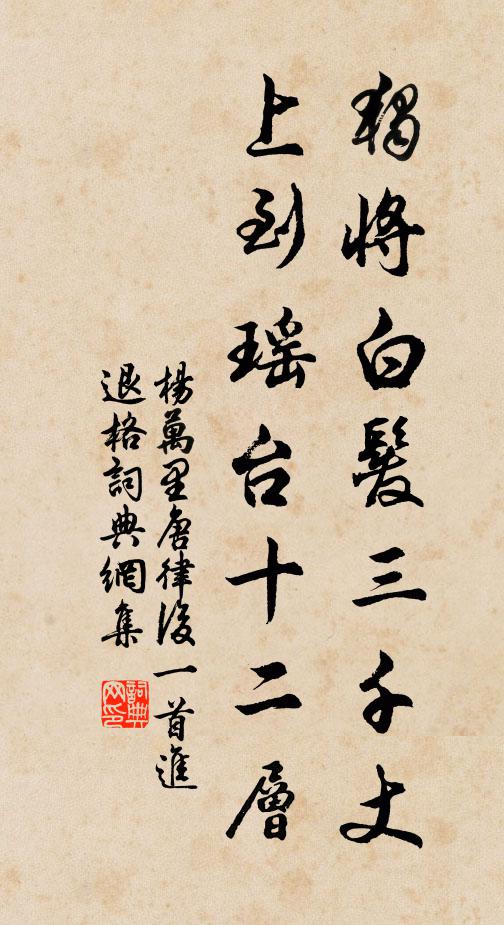 獨將白髮三千丈
上到瑶台十二層
楊萬里唐律後一首進
退格詞典網集
詞典
网印